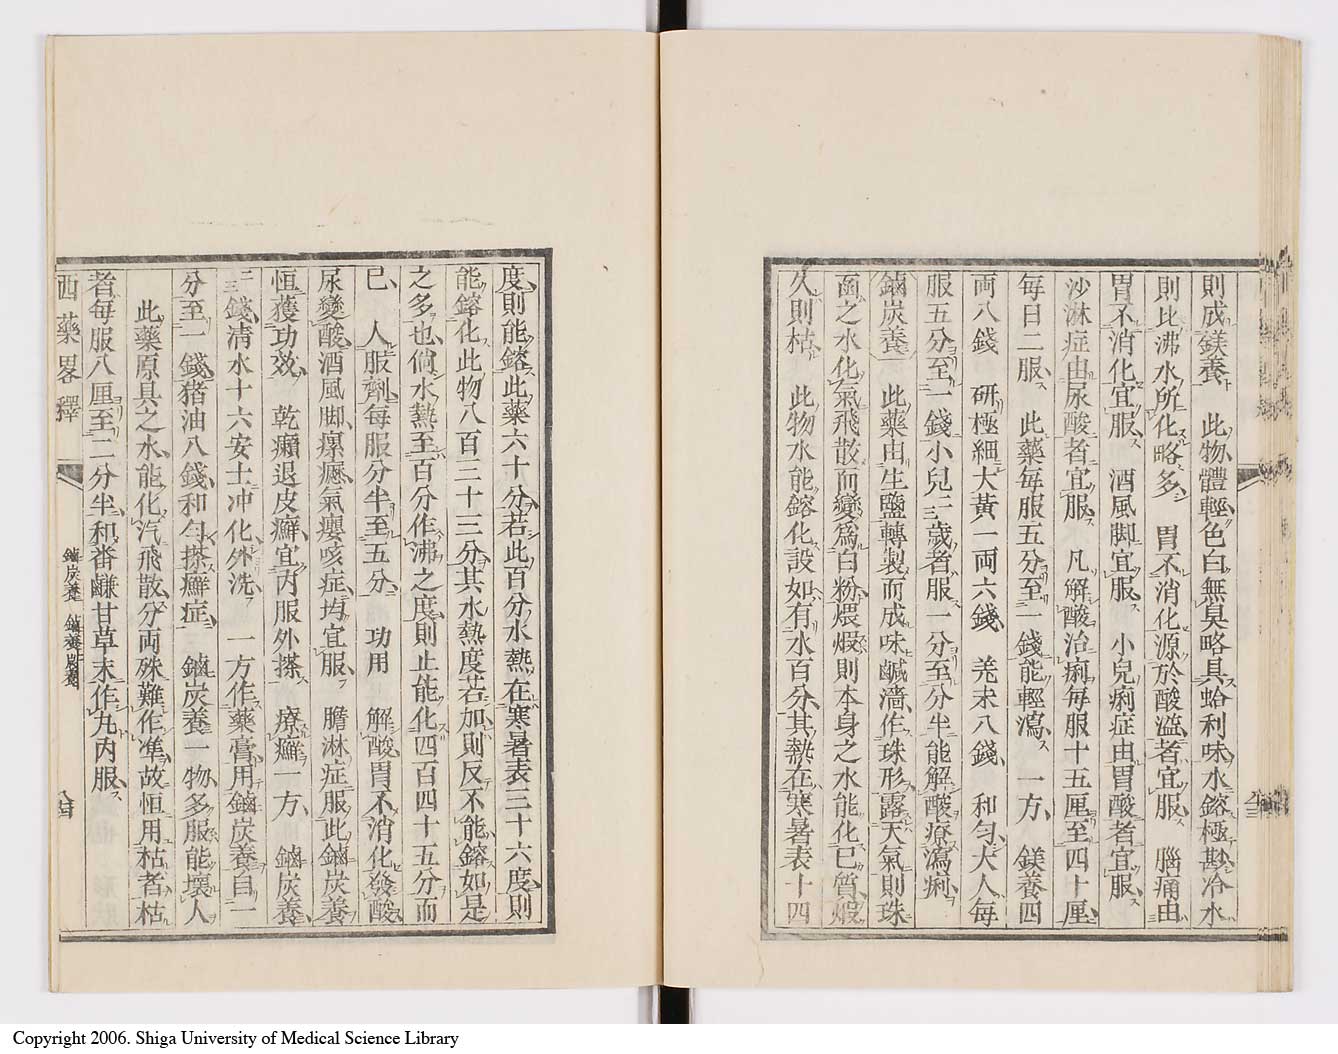 則成鎂養　此物體輕色白無臭略具蛤利味水鎔極尠冷水
則比沸水所化略多　胃不消化源於酸溢者宜服　腦痛由
胃不消化宜服　酒風脚宜服　小兒痢症由胃酸者宜服
沙淋症由尿酸者宜服　凡解酸治痢每服十五厘至四十厘
每日二服　此藥每服五分至一錢能輕瀉　一方　鎂養四
両八錢　研極細大黃一両六錢　羌末八錢　和勻大人每
服五分至一錢小兒二三歲者服一分至分半能解酸療瀉痢
鏀炭養　此藥由生鹽轉製而成味鹹濇作珠形露天氣則珠
面之水化氣飛散而變爲白粉煨煅則本身之水能化巳質煅
久則枯　此物水能鎔化設如有水百分其熱在寒暑表十四
度則能鎔此藥六十分若此百分水熱在寒暑表三十六度則
能鎔化此物八百三十三分其水熱度若加則反不能鎔如是
之多也倘水熱至百分作沸之度則止能化四百四十五分而
巳　人服劑每服分半至五分　功用　解酸胃不消化發酸
尿變酸酒風脚瘰癧氣癭咳症均宜服　膽淋症服此鏀炭養
恒獲功效　乾癩退皮癬宜內服外搽　療癬一方　鏀炭養
二三錢清水十六安士冲化外洗　一方作藥膏用鏀炭養自一
分至一錢猪油八錢和勻搽癬症　鏀炭養一物多服能壞人
此藥原具之水能化汽飛散分両殊難作準故恒用枯者枯
者每服八厘至二分半和番鹻甘草末作丸內服
西藥畧釋